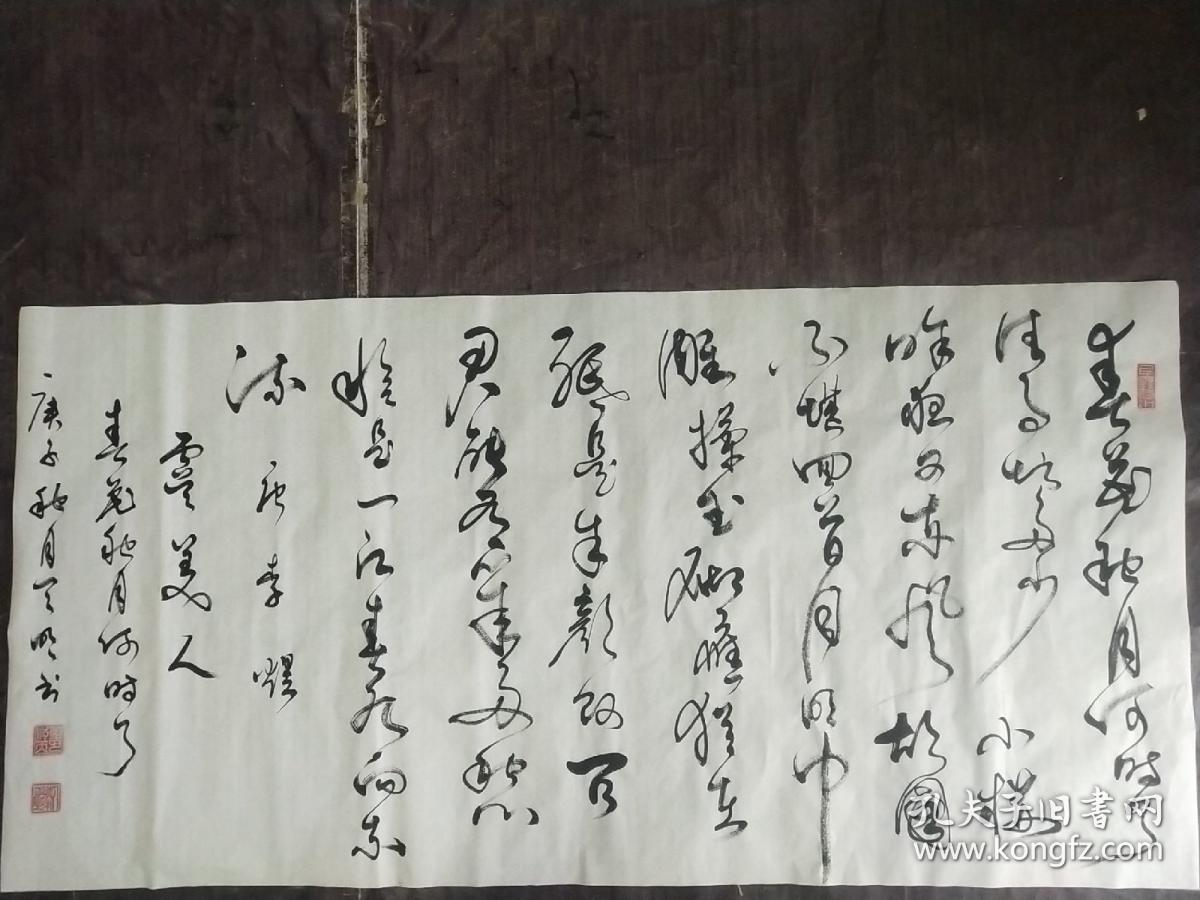 春花秋月何時了
往事知多少 小樓
昨夜又東風 故國
不堪回首月明中
雕欄玉砌應猶在
祗是朱顏改 问
君能有几多愁
恰是一江春水向东
流 唐 李煜
虞美人
春花秋月何時了
庚子秋月天明书
孔夫子旧书网
www.kongfz.com